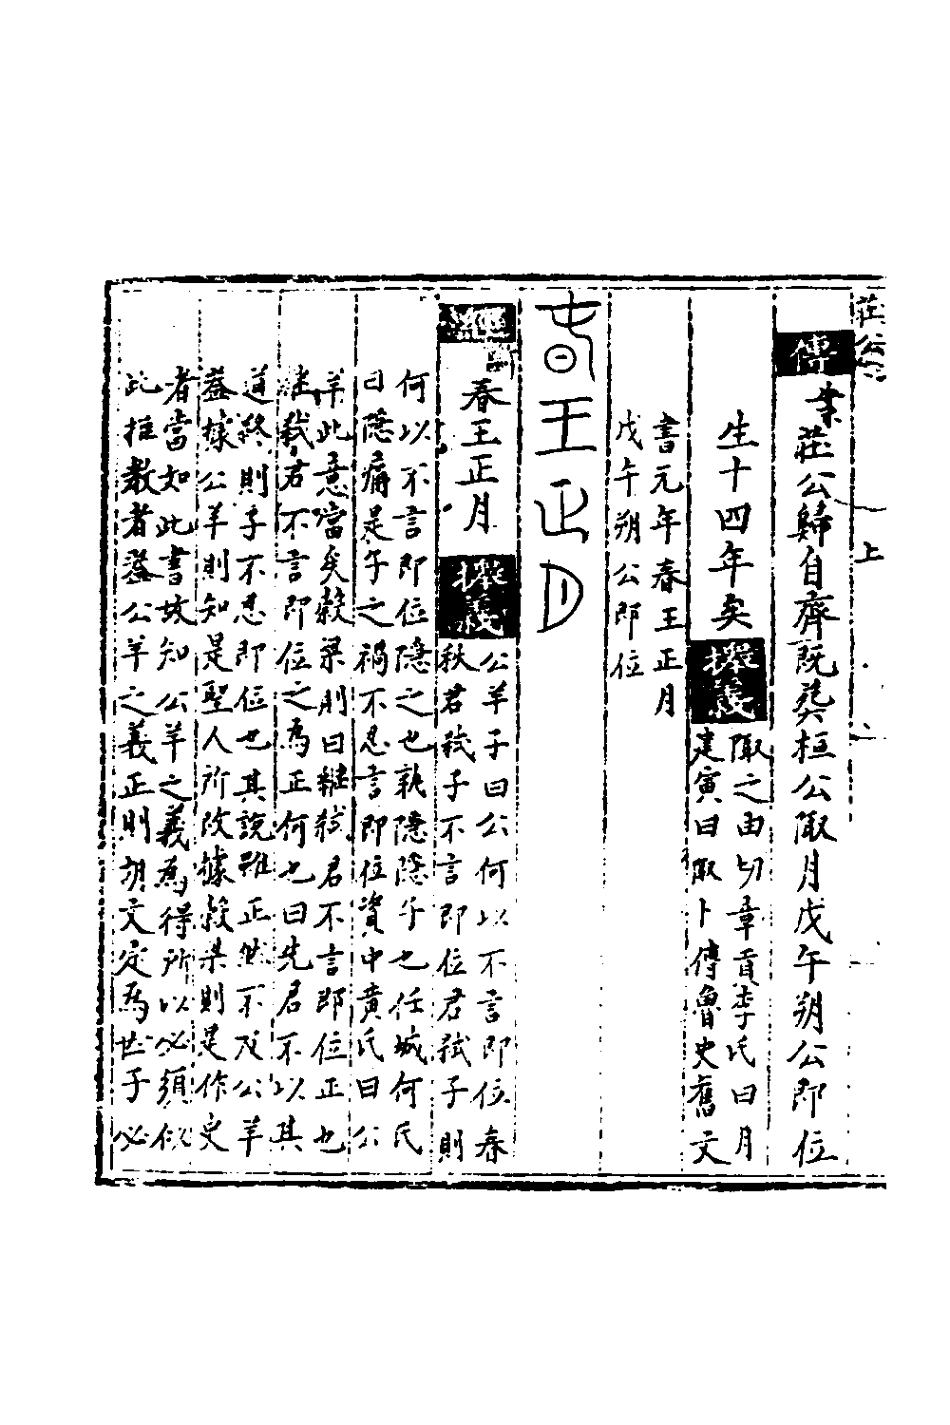 莊公 上
傳 莊公歸自齊既葬桓公陬月戊午朔公即位
生十四年矣
陬之由切章貢李氏曰月
建寅曰陬卜傳魯史舊文
書元年春王正月
戊午朔公即位
春王正月
經 春王正月
公羊子曰公何以不言即位春
秋君弒子不言即位君弒子則
何以不言即位隱之也孰隱隱子也任城何氏
曰隱痛是子之禍不忍言即位資中黃氏曰公
羊此意當矣穀梁則曰繼弒君不言即位正也
繼弒君不言即位之為正何也曰先君不以其
道終則子不忍即位也其說雖正然不及公羊
蓋據公羊則知是聖人所改據穀梁則是作史
者當如此書故知公羊之義為得所以必須似
此推教者蓋公羊之義正則胡文定為世子必